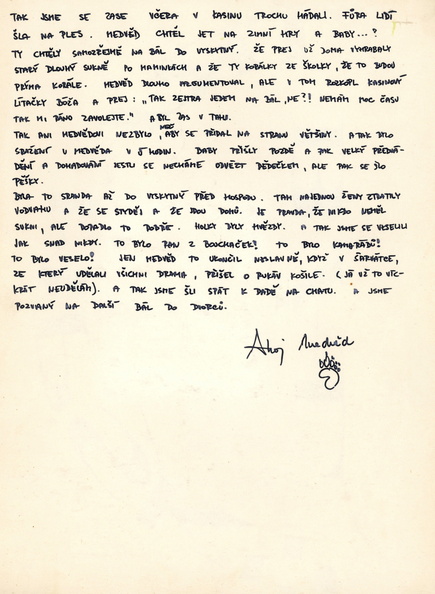 TAK JSME SE ZASE VČERA V KASINU TROCHU HÁDALI. FŮRA LIDÍ
ŠLA NA PLES. MEDVĚD CHTĚL JET NA ZIMNÍ HRY A BABY...?
TY CHTĚLY SAMOZŘEJMĚ NA BÁL DO VYSKYTNÝ. ŽE PREJ UŽ DOMA VYHRABALY
STARÝ DLOUHÝ SUKNĚ PO MAMINKÁCH A ŽE TY KORÁLKY ZE ŠKOLKY, ŽE TO BUDOU
PRÝMA KORÁLE. MEDVĚD DLOUHO ARGUMENTOVAL, ALE V TOM ROZKOPL KASINOVÝ
LÍTAČKY BÓŽA A PREJ: „TAK ZEJTRA JEDEM NA BÁL, NE?! NEMÁM MOC ČASU
TAK MI RÁNO ZAVOLEJTE." A BYL ZAS V TAHU.
TAK ANI MEDVĚDOVI NEZBYLO NEŽ, ABY SE PŘIDAL NA STRANU VĚTŠINY. A TAK BYLO
SRAŽENÍ U MEDVĚDA V 5 HODIN. BABY PŘIŠLY POZDĚ A PAK VELKÝ
A DOHADOVÁNÍ JESTLI SE NECHÁME ODVÉZT DĚDEČKEM, ALE PAK SE ŠLO
PĚŠKY.
BYLA TO SRANDA AŽ DO VYSKYTNÝ PŘED HOSPODU. TAM NAJEDNOU ŽENY ZTRATILY
VODVAHU A ŽE SE STYDĚJ A ŽE JDOU DOMŮ. JE PRAVDA, ŽE NIKDO NEMĚL
SUKNI, ALE DOPADLO TO DOBŘE. HOLKY BYLY HVĚZDY. A TAK JSME SE VESELILI
JAK SNAD NIKDY. TO BYLO RÁN Z BOUCHAČEK! TO BYLO KAMARÁDŮ!
TO BYLO VESELO! JEN MEDVĚD TO UKONČIL NESLAVNĚ, KDYŽ V ŠARVÁTCE,
ZE KTERÝ UDĚLALI VŠICHNI DRAMA, PŘIŠEL O RUKÁV KOŠILE. (JÁ UŽ TO VÍC-
KRÁT NEUDĚLÁM). A TAK JSME ŠLI SPÁT K DADĚ NA CHATU. A JSME
POZVANÝ NA DALŠÍ BÁL DO DVORCŮ.
Ahoj Medvěd